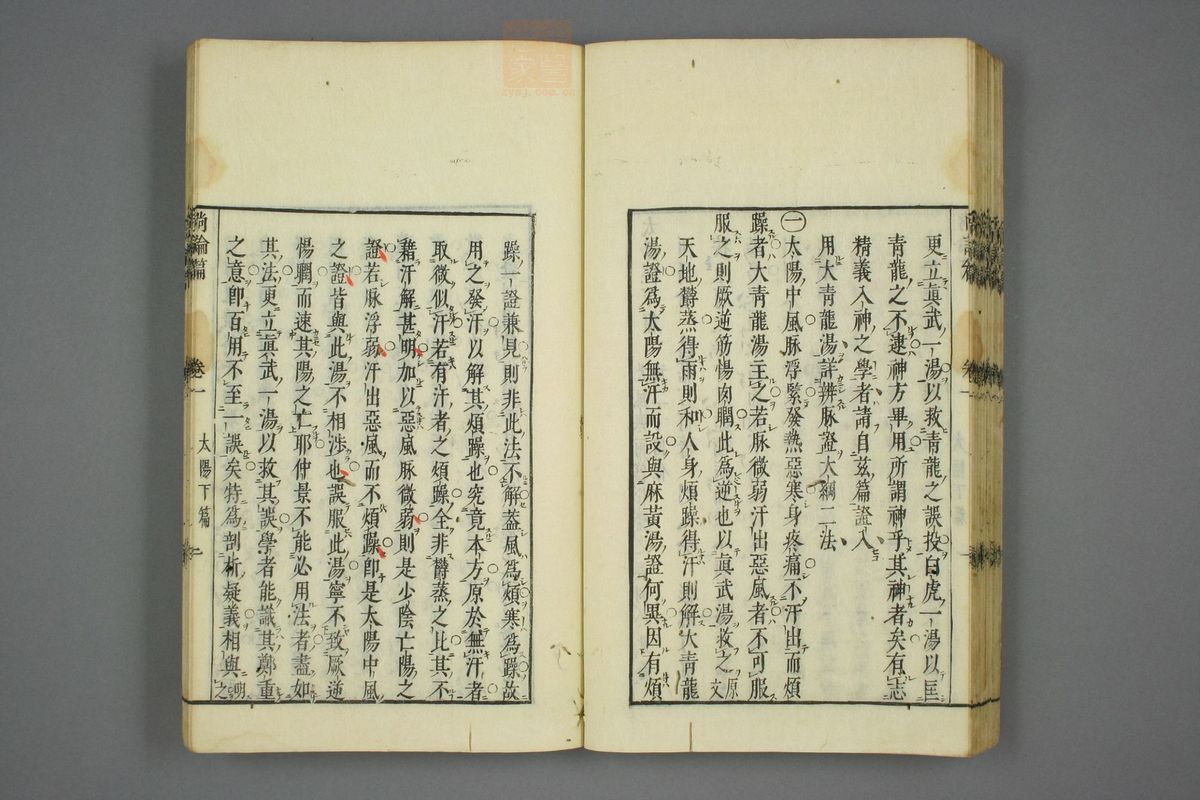 更立眞武一湯以救靑龍之誤投白虎一湯以匡
靑龍之不逮神方畢用所謂神乎其神者矣有志
精義入神之學者請自茲篇證入
用大靑龍湯詳辨脉證大綱二法
㊀太陽中風脉浮緊發熱惡寒身疼痛不汗出而煩
躁者大靑龍湯主之若脉微弱汗出惡風者不可服
服之則厥逆筋惕肉瞤此爲逆也以眞武湯救之原文
天地欝蒸得雨則和人身煩躁得汗則解大靑龍
湯證爲太陽無汗而設與麻黃湯證何異因有煩
躁一證兼見則非此法不解葢風爲煩寒爲躁故
用之發汗以解其煩躁也究竟本方原於無汗者
取微似汗若有汗者之煩躁全非欝蒸之比其不
藉汗解甚明加以惡風脉微弱則是少陰亡陽之
證若脉浮弱汗出惡風而不煩躁卽是太陽中風
之證皆與此湯不相涉也誤服此湯寧不致厥逆
惕瞤而速其陽之亡耶仲景不能必用法者盡如
其法更立眞武一湯以救其誤學者能識其鄭重
之意卽百用不至一誤矣特爲剖析疑義相與明之
尙論篇
卷一
太陽下篇
二